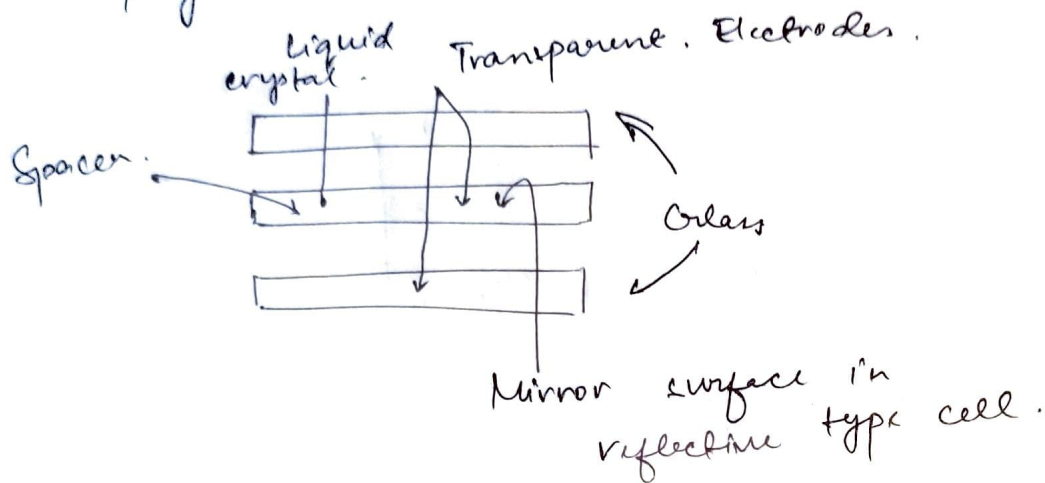 Liquid
crystal.
Transparent. Electrodes.
Spacer.
Glass
Mirror surface in
reflective type cell.